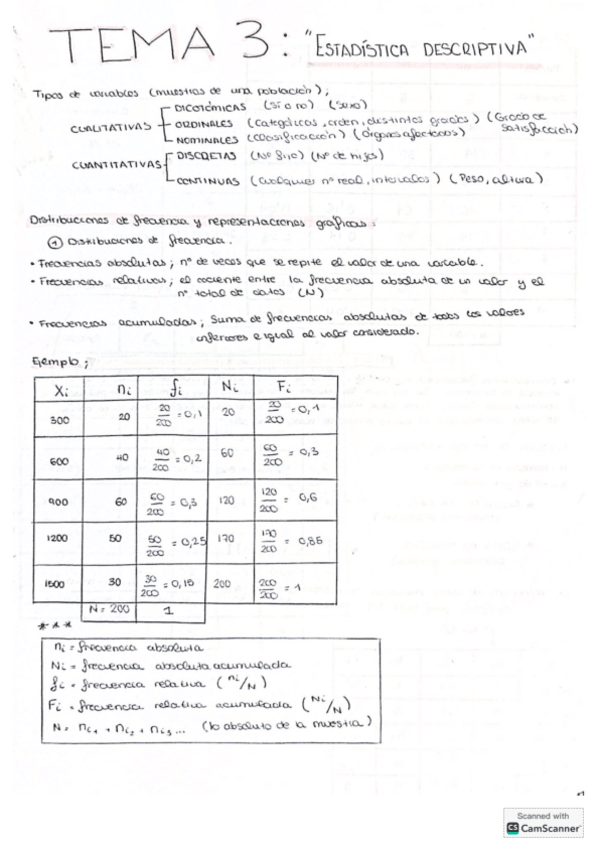 TEMA 3: "ESTADÍSTICA DESCRIPTIVA"
Tipos de variables (muestras de una población);
CUALITATIVAS
DICOTÓMICAS (sí o no) (sexo)
ORDINALES (categóricas, orden, distintos grados) (Grado de satisfacción)
NOMINALES (clasificación) (órganos afectados)
CUANTITATIVAS
DISCRETAS (Nº fijo) (Nº de hijos)
CONTINUAS (cualquier nº real, intervalos) (Peso, altura)
Distribuciones de frecuencia y representaciones gráficas:
① Distribuciones de frecuencia.
• Frecuencias absolutas; nº de veces que se repite el valor de una variable.
• Frecuencias relativas; el cociente entre la frecuencia absoluta de un valor y el
nº total de datos (N)
• Frecuencias acumuladas; Suma de frecuencias absolutas de todos los valores
inferiores e igual al valor considerado.
Ejemplo;
Xi ni fi Ni Fi
300 20 20/200 = 0,1 20 20/200 = 0,1
600 40 40/200 = 0,2 60 60/200 = 0,3
900 60 60/200 = 0,3 120 120/200 = 0,6
1200 50 50/200 = 0,25 170 170/200 = 0,85
1500 30 30/200 = 0,15 200 200/200 = 1
N = 200 1
***
ni = frecuencia absoluta
Ni = frecuencia absoluta acumulada
fi = frecuencia relativa (ni/N)
Fi = frecuencia relativa acumulada (Ni/N)
N = ni1 + ni2 + ni3... (lo absoluto de la muestra)
Scanned with
CS CamScanner